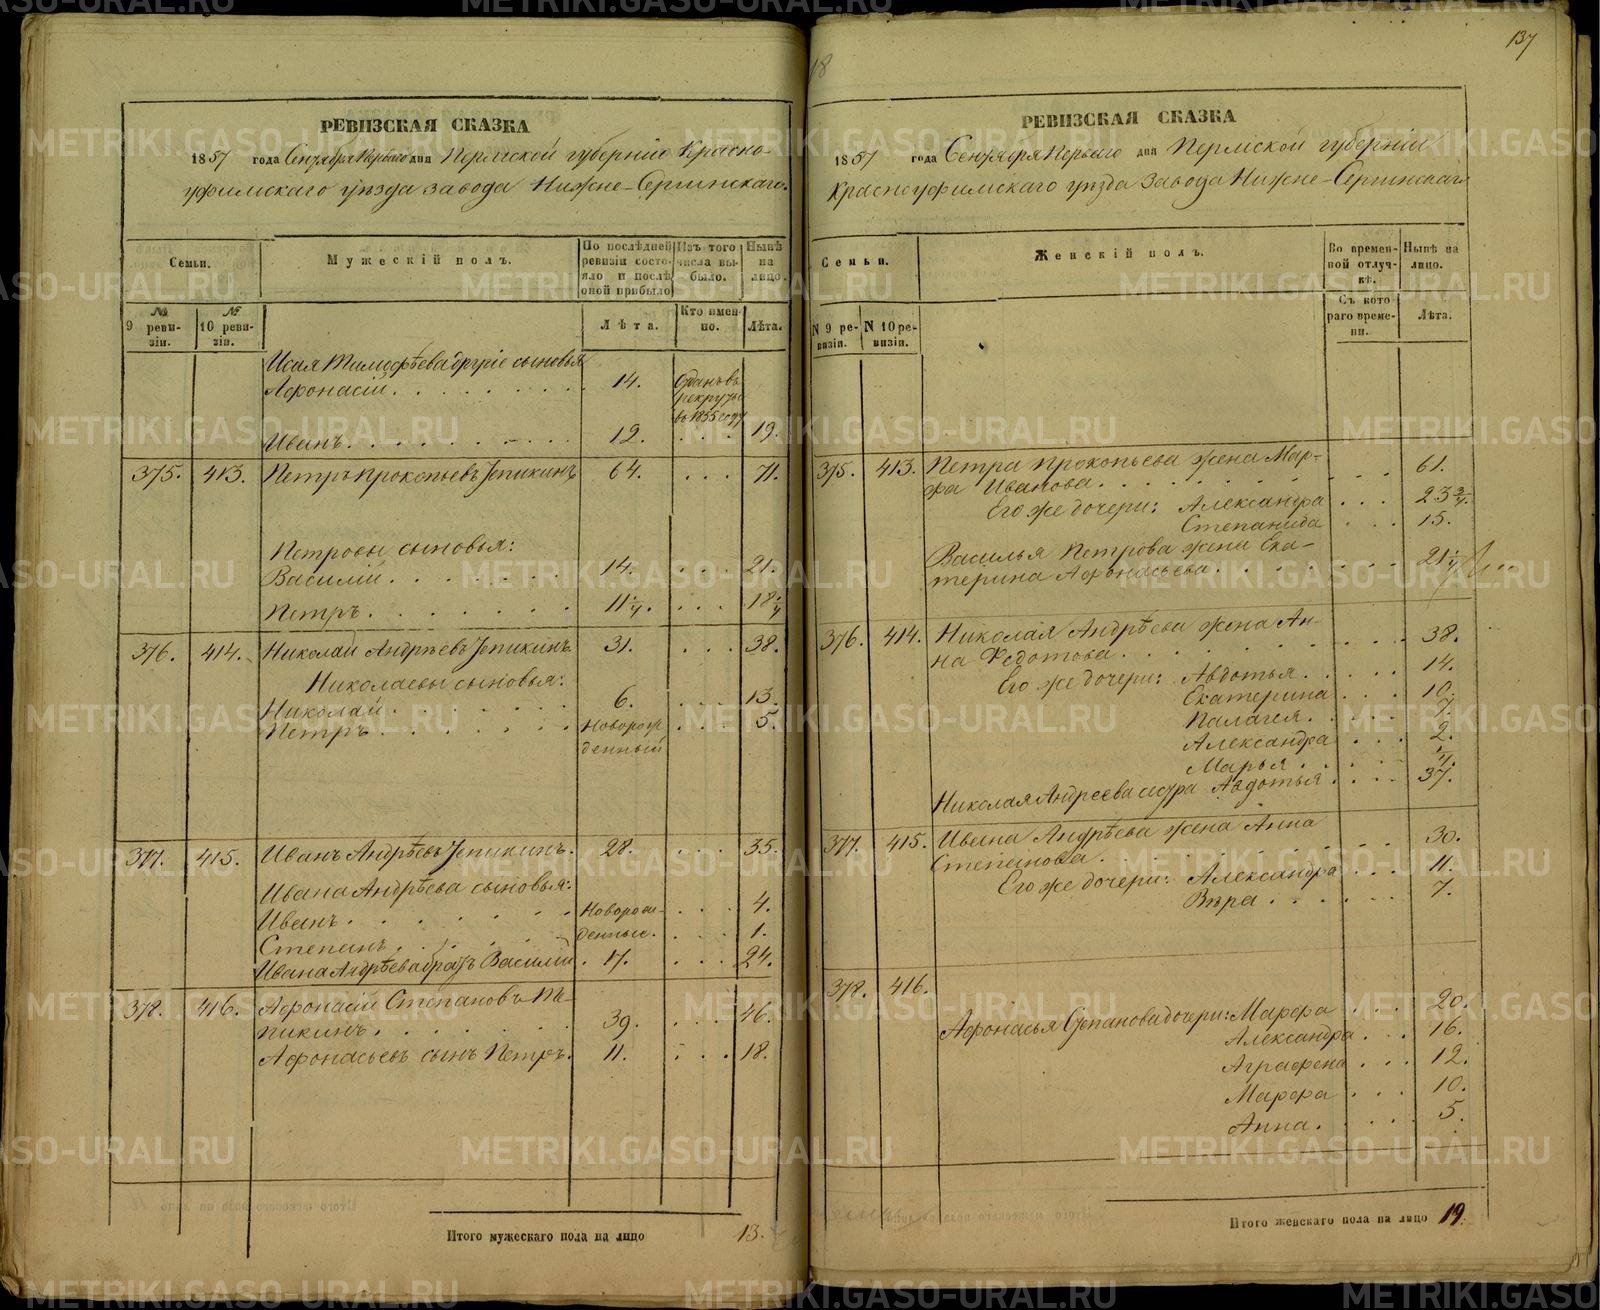 РЕВИЗСКАЯ СКАЗКА
1857 года Сентября Перваго дня Пермской губернiи Красно-
уфимскаго уѣзда завода Нижне-Сергинскаго.
Семьи.
Мужескiй полъ.
По послѣдней ревизiи состояло и послѣ оной прибыло
Изъ того числа выбыло.
Нынѣ на лицо.
№ 9 ревизiи.
№ 10 ревизiи.
Лѣта.
Кто именно.
Лѣта.
Исая Тимофѣева другiе сыновья
Афонасiй. 14. Отданъ въ рекруты въ 1855 году
Иванъ. 12. 19.
375. 413. Петръ Прокопьевъ 64. 71.
Петровы сыновья:
Василiй. 14. 21.
Петръ. 11 1/4. 18 1/4
376. 414. Николай Андрѣевъ 31. 38.
Николаевы сыновья:
Николай. 6. 13.
Петръ. Новорожденный 5.
377. 415. Иванъ Андрѣевъ 28. 35.
Ивана Андрѣева сыновья:
Иванъ. Новорож- 4.
Степанъ. денные. 1.
Ивана Андрѣева братъ Василiй. 17. 24.
378. 416. Афонасiй Степановъ
пикинъ. 39. 46.
Афонасьевъ сынъ Петръ. 11. 18.
Итого мужескаго пола на лицо 13.
137
18
РЕВИЗСКАЯ СКАЗКА
1857 года Сентября Перваго дня Пермской губернiи
Красноуфимскаго уѣзда завода Нижне-Сергинскаго
Семьи.
Женскiй полъ.
Во временной отлучкѣ.
Нынѣ на лицо.
N 9 ревизiи.
N 10 ревизiи.
Съ котораго времени.
Лѣта.
375. 413. Петра Прокопьева жена Мар-
фа Иванова. 61.
Его же дочери: Александра 23 3/4.
Степанида 15.
Василья Петрова жена Ека-
терина Афонасьева. 21 1/4
376. 414. Николая Андрѣева жена Ан-
на Федотова. 38.
Его же дочери: Авдотья. 14.
Екатерина 10.
Палагея. 7.
Александра 2.
Марья. 1/4.
Николая Андреева сестра Авдотья 37.
377. 415. Ивана Андрѣева жена Анна
Степанова. 30.
Его же дочери: Александра 11.
Вѣра. 7.
378. 416.
Афонасья Степанова дочери: Марфа 20.
Александра 16.
Аграфена 12.
Марфа 10.
Анна. 5.
Итого женскаго пола на лицо 19.
METRIKI.GASO-URAL.RU